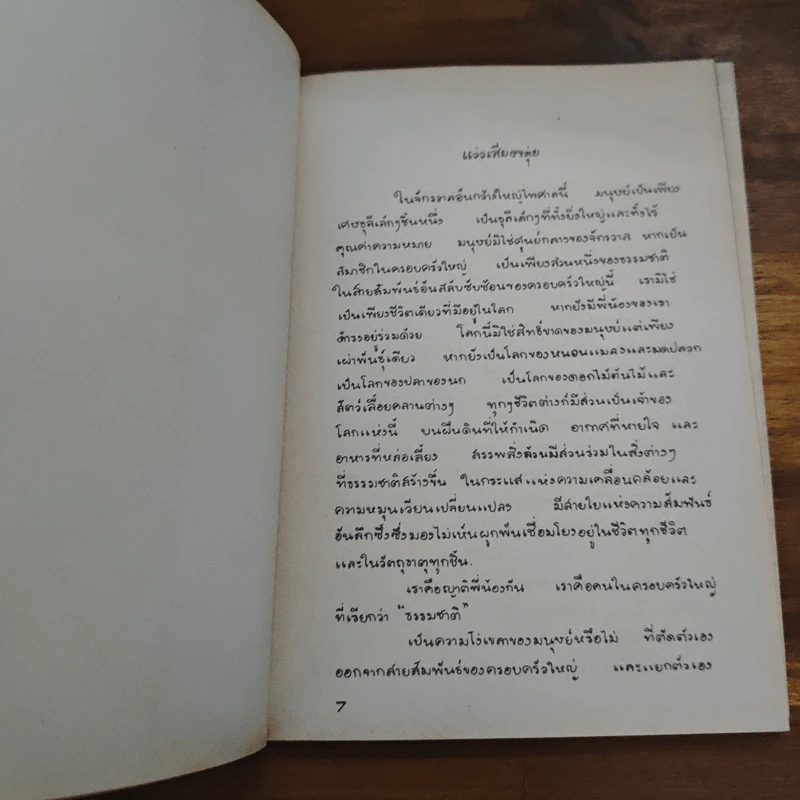 แว่วเสียงขลุ่ย
ในจักรวาลอันกว้างใหญ่ไพศาลนี้ มนุษย์เป็นเพียง
เศษธุลีเล็กๆชิ้นหนึ่ง เป็นธุลีเล็กๆที่ทั้งยิ่งใหญ่และทั้งไร้
คุณค่าความหมาย มนุษย์มิใช่ศูนย์กลางของจักรวาล หากเป็น
สมาชิกในครอบครัวใหญ่ เป็นเพียงส่วนหนึ่งของธรรมชาติ
ในสายสัมพันธ์อันสลับซับซ้อนของครอบครัวใหญ่นี้ เรามิใช่
เป็นเพียงชีวิตเดียวที่มีอยู่ในโลก หากยังมีพี่น้องของเรา
ดำรงอยู่ร่วมด้วย โลกนี้มิใช่สิทธิ์ขาดของมนุษย์แต่เพียง
เผ่าพันธุ์เดียว หากยังเป็นโลกของหนอนแมลงและมดปลวก
เป็นโลกของปลาของนก เป็นโลกของดอกไม้ต้นไม้และ
สัตว์เลื้อยคลานต่างๆ ทุกๆชีวิตต่างก็มีส่วนเป็นเจ้าของ
โลกแห่งนี้ บนผืนดินที่ให้กำเนิด อากาศที่หายใจ และ
อาหารที่หล่อเลี้ยง สรรพสิ่งล้วนมีส่วนร่วมในสิ่งต่างๆ
ที่ธรรมชาติสร้างขึ้น ในกระแสแห่งความเคลื่อนคล้อยและ
ความหมุนเวียนเปลี่ยนแปลง มีสายใยแห่งความสัมพันธ์
อันลึกซึ้งซึ่งมองไม่เห็นผูกพันเชื่อมโยงอยู่ในชีวิตทุกชีวิต
และในวัตถุธาตุทุกชิ้น.
เราคือญาติพี่น้องกัน เราคือคนในครอบครัวใหญ่
ที่เรียกว่า "ธรรมชาติ"
เป็นความโง่เขลาของมนุษย์หรือไม่ ที่ตัดตัวเอง
ออกจากสายสัมพันธ์ของครอบครัวใหญ่ และแยกตัวเอง
7